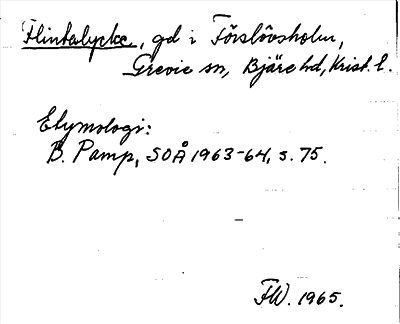 Flintalycke, gd i Förslövsholm,
Grevie sn, Bjäre hd, Krist. l.
Etymologi:
B. Pamp, SOÅ 1963-64, s. 75.
FW. 1965.